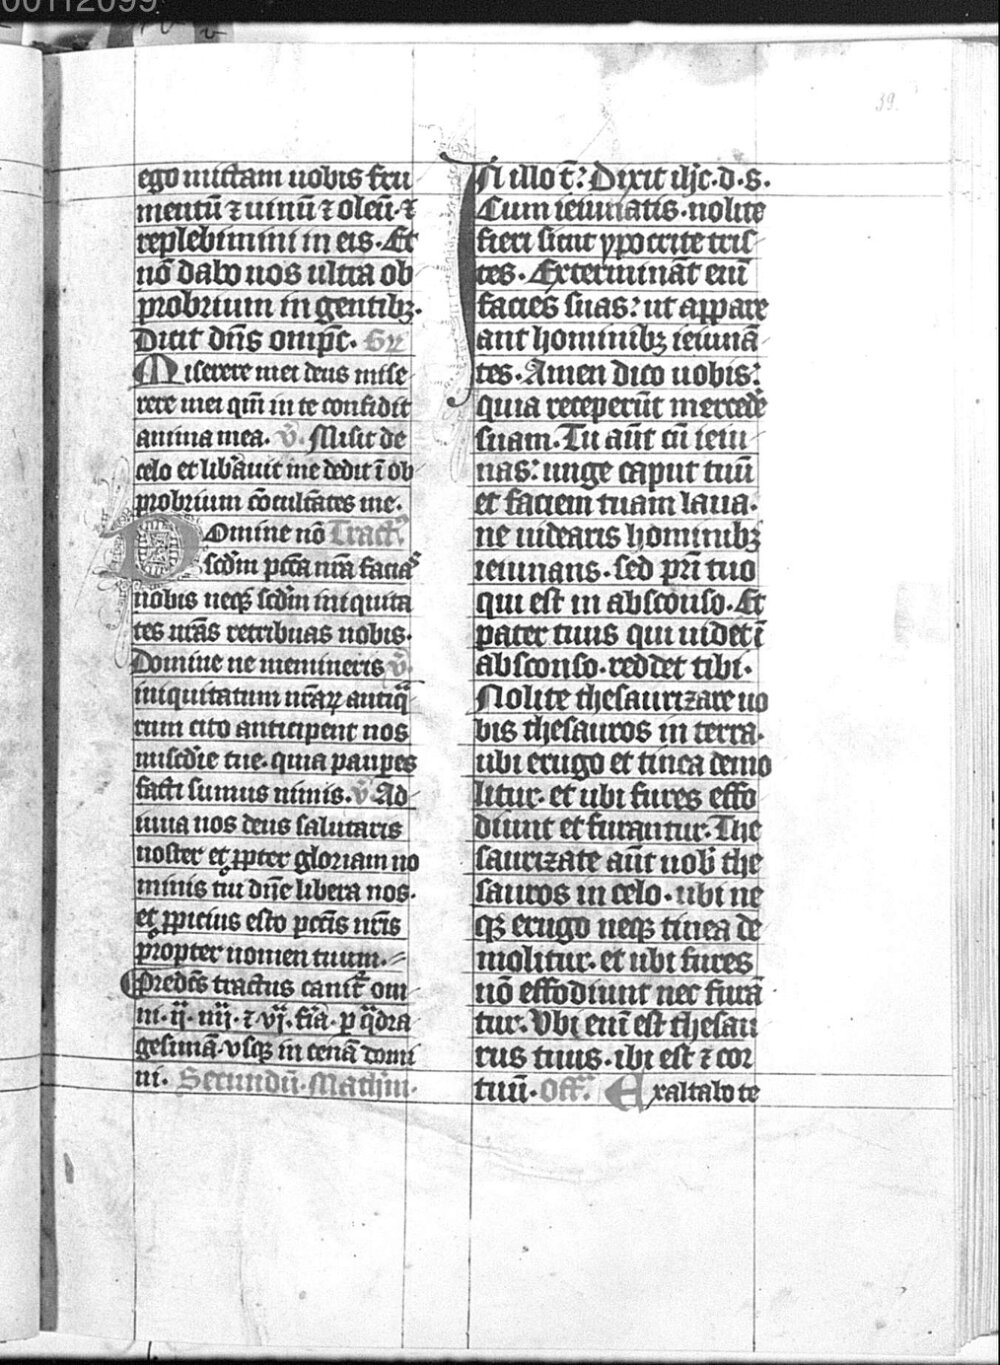 00112099
39.
ego mittam uobis fru
mentū ⁊ uinū ⁊ oleū ⁊
replebimini in eis. Et
nō dabo uos ultra ob
probrium in gentibꝫ.
Dicit dn̄s omp̄c. Gr̄
Miserere mei deus mise
rere mei qm̄ in te confidit
anima mea. v̄. Misit de
celo et lib̄auit me dedit ī ob
probrium cōculcātes me.
Domine nō Tract᷒
scdm̄ pccā nr̄a facias
nobis neqꝫ scdm̄ iniquita
tes nrās retribuas nobis.
Domine ne memineris v̄.
iniquitatum nrāꝝ antiq̄
rum cito anticipent nos
miscdīe tue. quia paupes
facti sumus nimis. v̄ Ad
iuua nos deus salutaris
noster et ꝓpter gloriam no
minis tui dn̄e libera nos.
et ꝓpicius esto pctīs nrīs
propter nomen tuum.
Predc̄s tractus canit᷒ om
ni. ij. iiij. ⁊ vj. fīa. p q̄dra
gesimā. vsqꝫ in cenā domi
ni. Secundū. Mathm̄.
In illo t̄. Dixit ih̄c. d. s.
Cum ieiunatis. nolite
fieri sicut ypocrite tris
tes. Extermināt enī
facies suas: ut appare
ant hominibꝫ ieiunā
tes. Amen dico uobis:
quia receperūt mercedē
suam. Tu aūt cū ieiu
nas: unge caput tuū
et faciem tuam laua.
ne uidearis hominibꝫ
ieiunans. sed prī tuo
qui est in absconso. Et
pater tuus qui uidet ī
absconso. reddet tibi.
Nolite thesaurizare uo
bis thesauros in terra.
ubi erugo et tinea demo
litur. et ubi fures effo
diunt et furantur. The
saurizate aūt uob̄ the
sauros in celo. ubi ne
qꝫ erugo neqꝫ tinea de
molitur. et ubi fures
nō effodiunt nec furā
tur. Vbi enī est thesau
rus tuus. ibi est ⁊ cor
tuū. Off. Exaltabo te